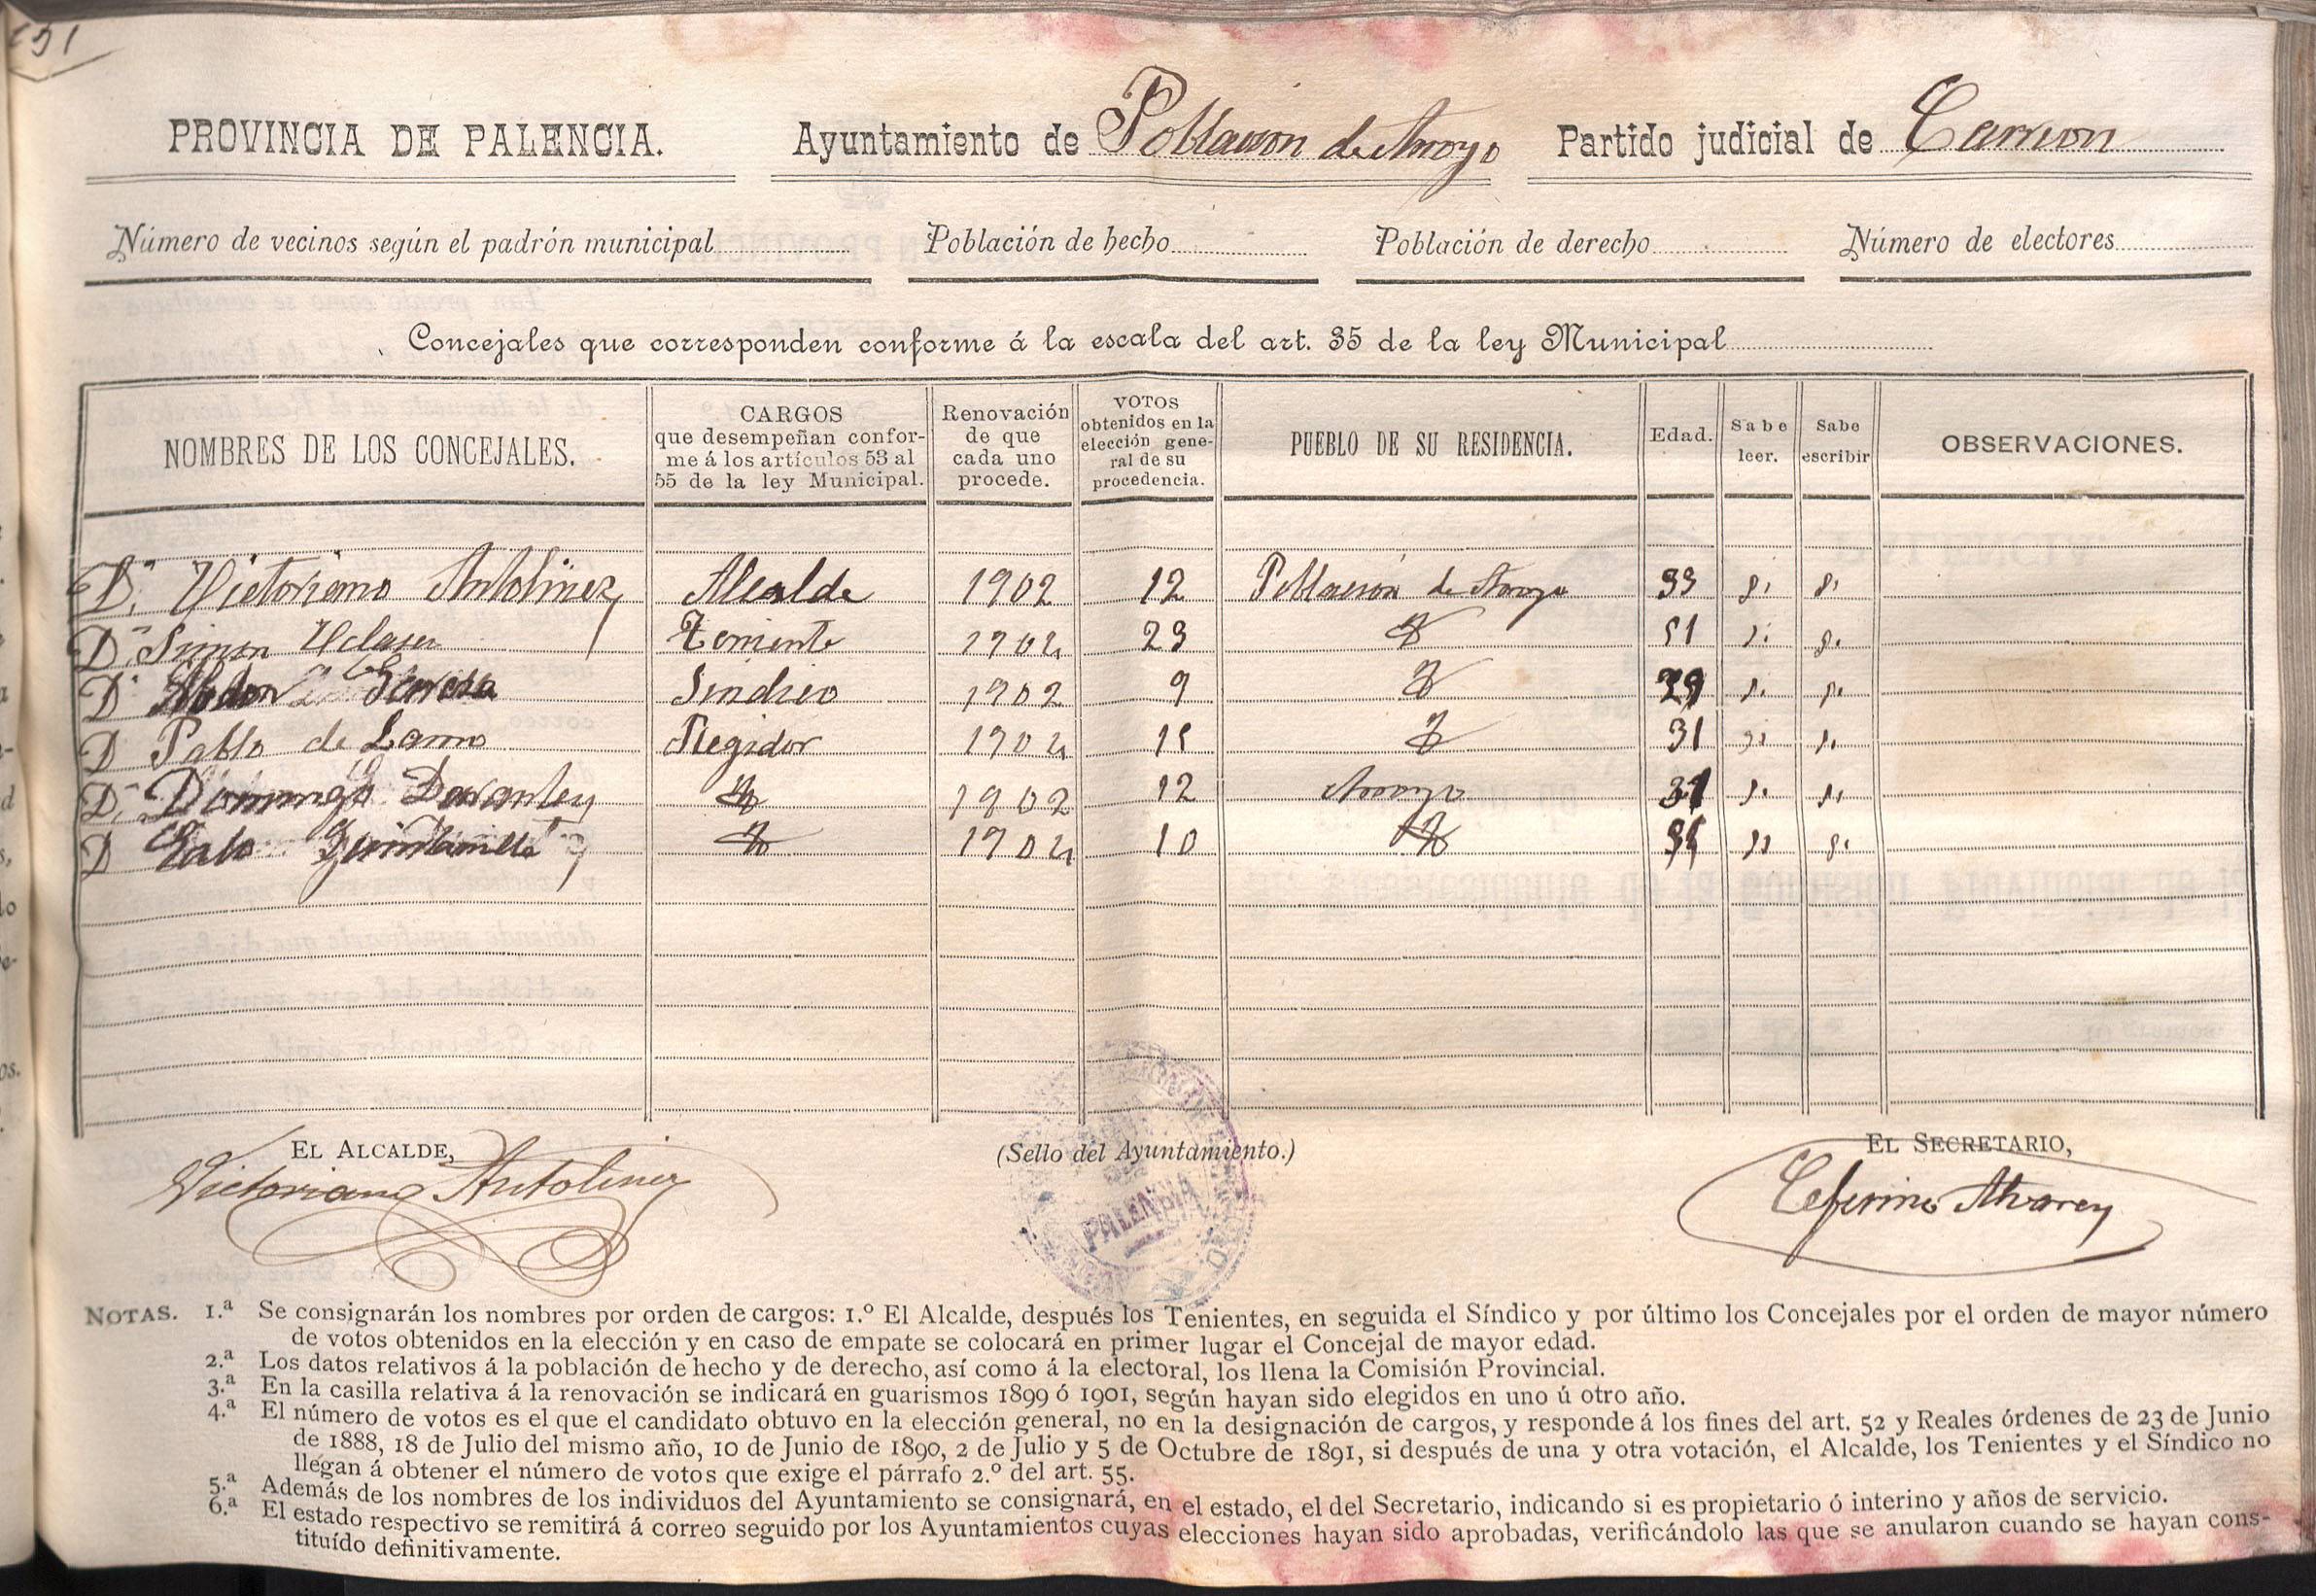 PROVINCIA DE PALENCIA. Ayuntamiento de Poblacion de Arroyo Partido judicial de Carrion
Número de vecinos según el padrón municipal Población de hecho Población de derecho Número de electores
Concejales que corresponden conforme á la escala del art. 35 de la ley Municipal
NOMBRES DE LOS CONCEJALES. CARGOS que desempeñan confor- me á los artículos 53 al 55 de la ley Municipal. Renovación de que cada uno procede. VOTOS obtenidos en la elección gene- ral de su procedencia. PUEBLO DE SU RESIDENCIA. Edad. Sabe leer. Sabe escribir OBSERVACIONES.
Dn Victoriano Antolinez Alcalde 1902 12 Poblacion de Arroyo 33 si si
Dn Simon Teniente 23 51 si si
D Sindico 1902 9 29 si si
D Pablo de Regidor 31 si si
D Domingo 1902 12 Arroyo si si
D Quintanilla 10 si si
EL ALCALDE, (Sello del Ayuntamiento.) EL SECRETARIO,
Victoriano Antolinez PALENCIA Ceferino Alvarez
NOTAS. 1.ª Se consignarán los nombres por orden de cargos: 1.º El Alcalde, después los Tenientes, en seguida el Síndico y por último los Concejales por el orden de mayor número
de votos obtenidos en la elección y en caso de empate se colocará en primer lugar el Concejal de mayor edad.
2.ª Los datos relativos á la población de hecho y de derecho, así como á la electoral, los llena la Comisión Provincial.
3.ª En la casilla relativa á la renovación se indicará en guarismos 1899 ó 1901, según hayan sido elegidos en uno ú otro año.
4.ª El número de votos es el que el candidato obtuvo en la elección general, no en la designación de cargos, y responde á los fines del art. 52 y Reales órdenes de 23 de Junio
de 1888, 18 de Julio del mismo año, 10 de Junio de 1890, 2 de Julio y 5 de Octubre de 1891, si después de una y otra votación, el Alcalde, los Tenientes y el Síndico no
llegan á obtener el número de votos que exige el párrafo 2.º del art. 55.
5.ª Además de los nombres de los individuos del Ayuntamiento se consignará, en el estado, el del Secretario, indicando si es propietario ó interino y años de servicio.
6.ª El estado respectivo se remitirá á correo seguido por los Ayuntamientos cuyas elecciones hayan sido aprobadas, verificándolo las que se anularon cuando se hayan cons-
tituído definitivamente.